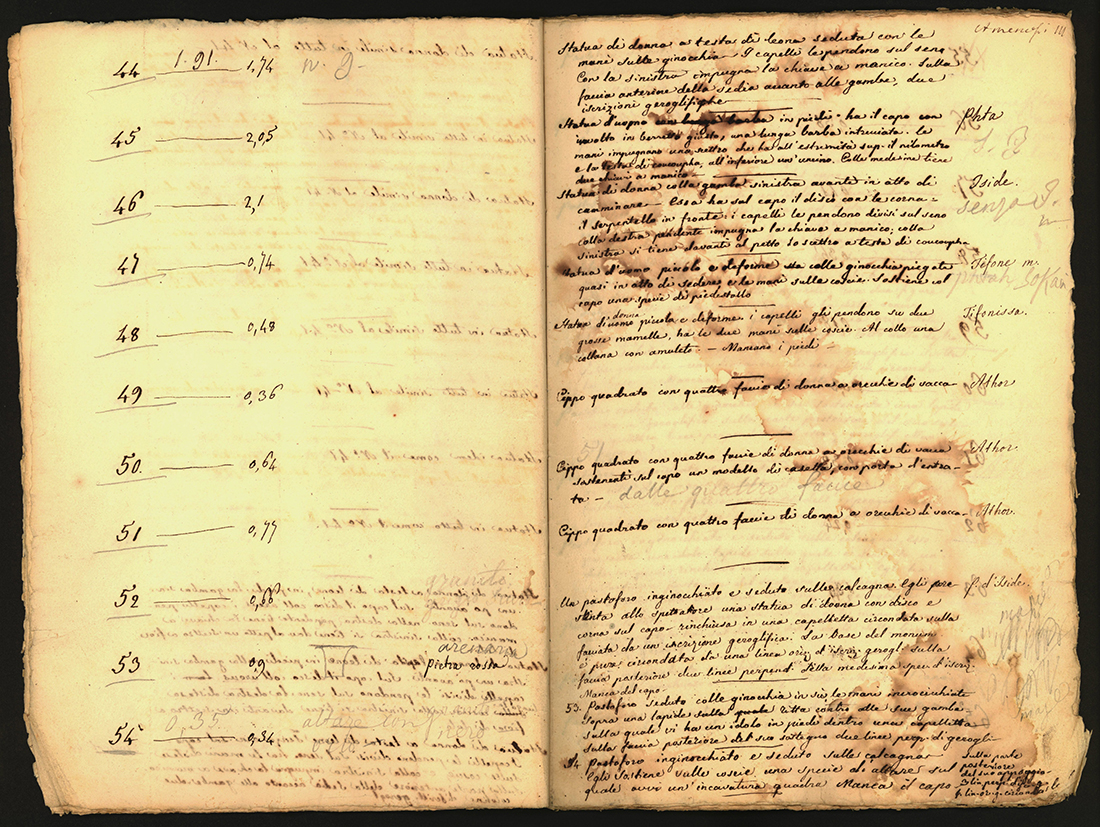 44 1.91. 1,74 n. g.
45 2,05
46 2,1
47 0,74
48 0,48
49 0,36
50. 0,64
51 0,77
granito
52 0,68
arenaria
53 0,9 pietra rossa
54 0,35 0,34 altare con
Amenofi. III
Statua di donna a testa di leona seduta con le
mani sulle ginocchia — I capelli le pendono sul seno
Con la sinistra impugna la chiave a manico. Sulla
faccia anteriore della sedia avanto alle gambe, due
iscrizioni geroglifiche
Statua d'uomo con lunga barba in piedi. ha il capo con Phta
involto in berretto giusto, una lunga barba intrecciata. le
mani impugnano uno scettro che ha all'estremità sup. il nilometro
e la testa di coucoupha, all'inferiore un'uncino. Colle medesime tiene
due chiavi a manico
Statua di donna colla gamba sinistra avanti in atto di Iside.
camminare — Essa ha sul capo il disco con le corna = senza
il serpentello in fronte; i capelli le pendono divisi sul seno
colla destra pendente impugna la chiave a manico; colla
sinistra si tiene davanti al petto lo scettro a testa di coucoupha
Statua d'uomo piccolo e deforme sta colle ginocchia piegate Tifone m.
quasi in atto di sedere, e le mani sulle coscie. Sostiene col
capo una specie di piedestallo
Statua di uomo donna piccola e deforme. i capelli gli pendono su due Tifonissa.
grosse mamelle, ha le due mani sulle coscie. Al collo una
collana con amuleti — Mancano i piedi —
Cippo quadrato con quattro faccie di donna a orecchie di vacca — Athor
51
Cippo quadrato con quattro faccie di donna a orecchie di vacca Athor.
sostenenti sul capo un modello di casetta, con porta d'entra-
ta — dalle quattro faccie
Cippo quadrato con quattro faccie di donna a orecchie di vacca — Athor.
Un pastoforo inginocchiato e seduto sulle calcagna. Egli pre- f. d'Iside.
senta allo spettatore una statua di donna con disco e
corna sul capo — rinchiusa in una capelletta circondata sulla
facciata da un iscrizione geroglifica. La Base del monum.
è pure circondata da una linea oriz. d'iscriz. gerogl. sulla
faccia posteriore due linee perpendi. della medesima spec. d'iscriz.
Manca del capo
53. Pastoforo seduto colle ginocchia in su, le mani incrocicchiate
sopra una lapide sulla quale ritta contro alle sue gambe
sulla quale vi ha un idolo in piedi dentro una capelletta
sulla faccia posteriore del suo sostegno due linee perp. di gerogli-
54. Pastoforo inginocchiato e seduto sulle calcagna
Egli sostiene sulle coscie una specie di altare sul
quale avvi un'incavatura quadra Manca il capo
Sulla parte
posteriore
del suo appoggio